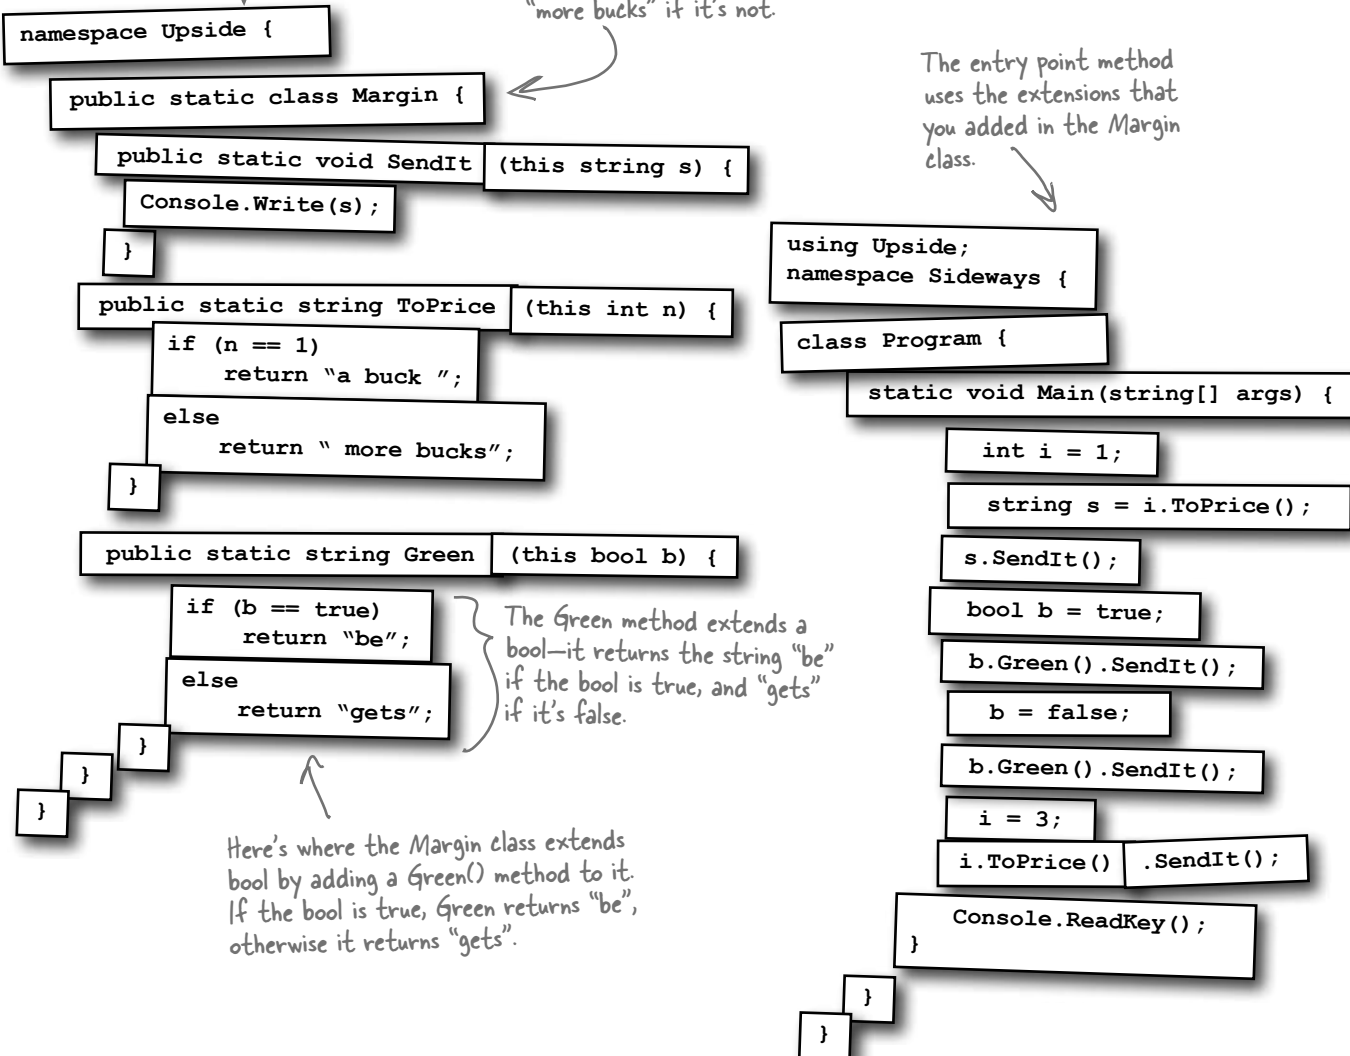 "more bucks" if it's not.
namespace Upside {
public static class Margin {
public static void SendIt (this string s) {
Console.Write(s);
}
public static string ToPrice (this int n) {
if (n == 1)
return “a buck ”;
else
return “ more bucks”;
}
public static string Green (this bool b) {
if (b == true)
return “be”;
else
return “gets”;
}
}
}
The Green method extends a
bool—it returns the string “be”
if the bool is true, and “gets”
if it's false.
Here's where the Margin class extends
bool by adding a Green() method to it.
If the bool is true, Green returns “be”,
otherwise it returns “gets”.
The entry point method
uses the extensions that
you added in the Margin
class.
using Upside;
namespace Sideways {
class Program {
static void Main(string[] args) {
int i = 1;
string s = i.ToPrice();
s.SendIt();
bool b = true;
b.Green().SendIt();
b = false;
b.Green().SendIt();
i = 3;
i.ToPrice() .SendIt();
Console.ReadKey();
}
}
}